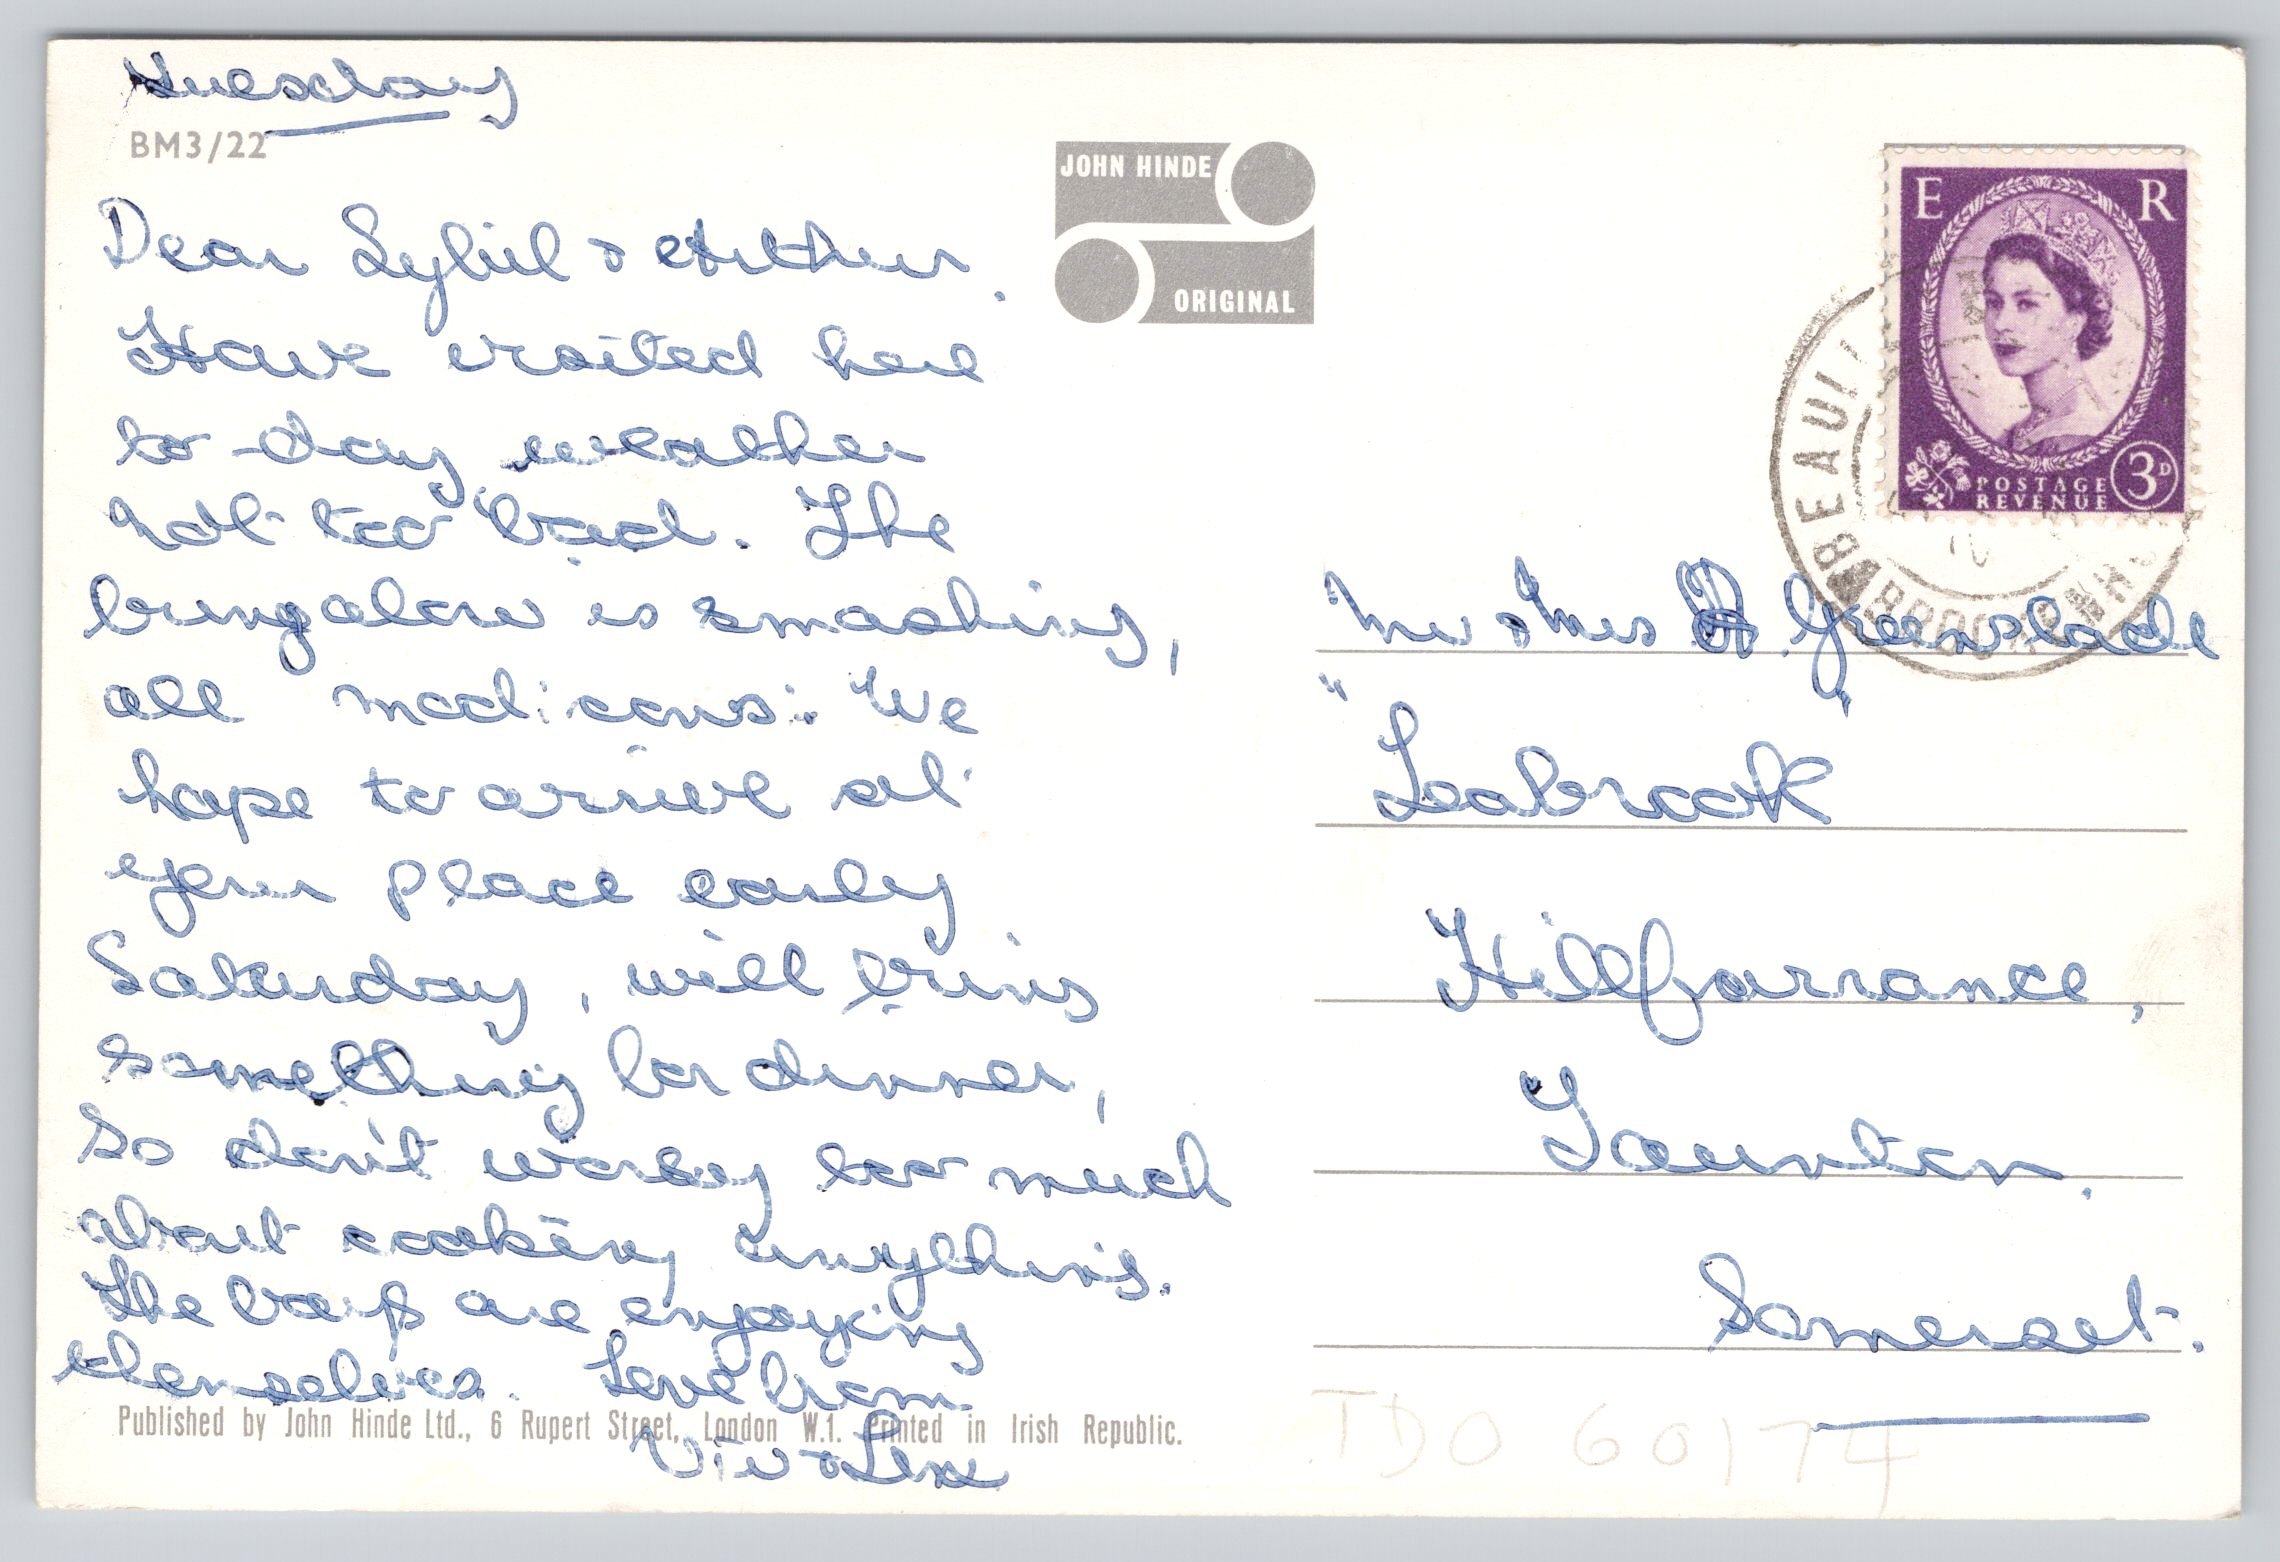 Tuesday
BM3/22
Dear Sybil & Arthur.
Have visited here
to-day weather
not too bad. The
bungalow is smashing,
all mod: cons:. We
hope to arrive at
your place early
Saturday, will bring
something for dinner,
so don't worry too much
about cooking anything.
The boys are enjoying
themselves. Love from
Viv & Len
Published by John Hinde Ltd., 6 Rupert Street, London W.1. Printed in Irish Republic.
JOHN HINDE
ORIGINAL
E R
POSTAGE
REVENUE
3D
BEAULI
BROCKENHU
Mr & Mrs A. Greenslade
"Leabrook"
Hillfarrance,
Taunton.
Somerset.
TDO 60174